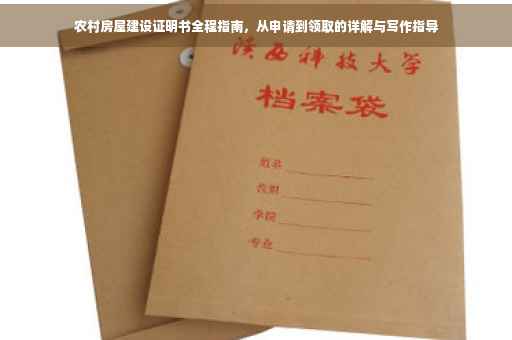 农村房屋建设证明书全程指南，从申请到领取的详解与写作指导
陕西科技大学
档案袋
姓名
学院
专业